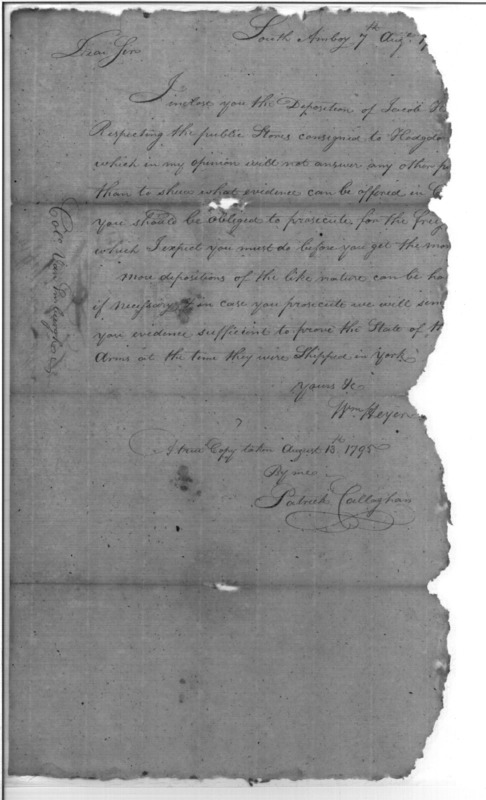 South Amboy 7th Augt
Dear Sir
I inclose you the Deposition of Jacob
Respecting the public Stores consigned to Hodgdon
which in my opinion will not answer any other
than to shew what evidence can be offered in
you should be obliged to prosecute for the
which I expect you must do before you get the
more depositions of the like nature can be
if necessary & in case you prosecute we will
you evidence sufficient to prove the State of
Arms at the time they were Shipped in York
Yours &c
Wm Heyer
A true Copy taken August 13th 1795
By me
Patrick Callaghan
Colo. Van